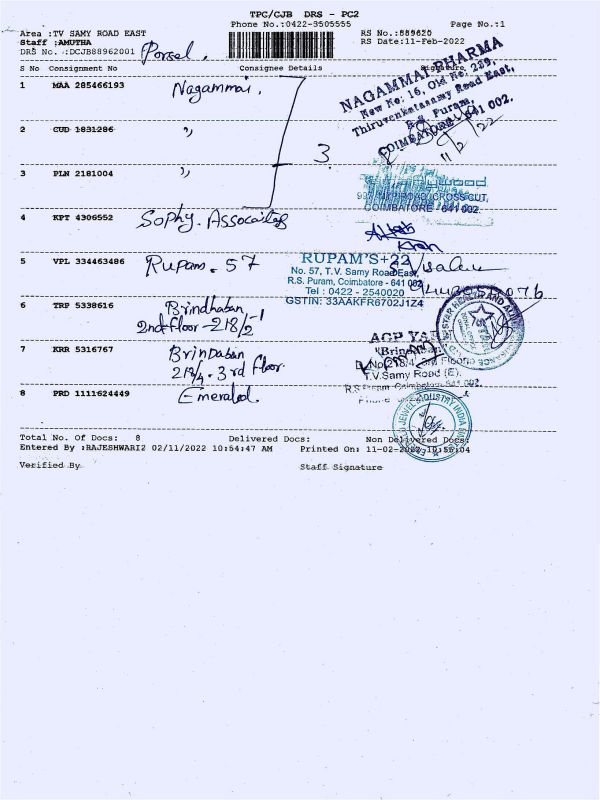 TPC/CJB DRS - PC2
Phone No.:0422-3505555 Page No.:1
Area :TV SAMY ROAD EAST RS No.:889620
Staff :AMUTHA RS Date:11-Feb-2022
DRS No. :DCJB88962001
S No Consignment No Consignee Details Signature
NAGAMMAI PHARMA
New No: 16, Old No: 239,
Thiruvenkatasamy Road East,
R.S. Puram,
COIMBATORE - 641 002.
11/2/22
1 MAA 285466193 Nagammai.
2 CUD 1831286 "
3.
3 PLN 2181004 "
COIMBATORE - 641 002.
4 KPT 4306552 Sophy. Associates
5 VPL 334463486 Rupam. 57
RUPAM'S+22
No. 57, T.V. Samy Road East,
R.S. Puram, Coimbatore - 641 002
Tel : 0422 - 2540020
GSTIN: 33AAKFR6702J1Z4
6 TRP 5338616 Brindhaban
2nd Floor - 218/2-1
STAR HEALTH AND
7 KRR 5316767 Brindaban
218/4. 3rd Floor.
T.V.Samy Road (E).
8 PRD 1111624449 Emerald.
JEWEL INDUSTRY INDIA
Total No. Of Docs: 8 Delivered Docs: Non Delivered Docs:
Entered By :RAJESHWARI2 02/11/2022 10:54:47 AM Printed On: 11-02-2022 10:56:04
Verified By Staff Signature